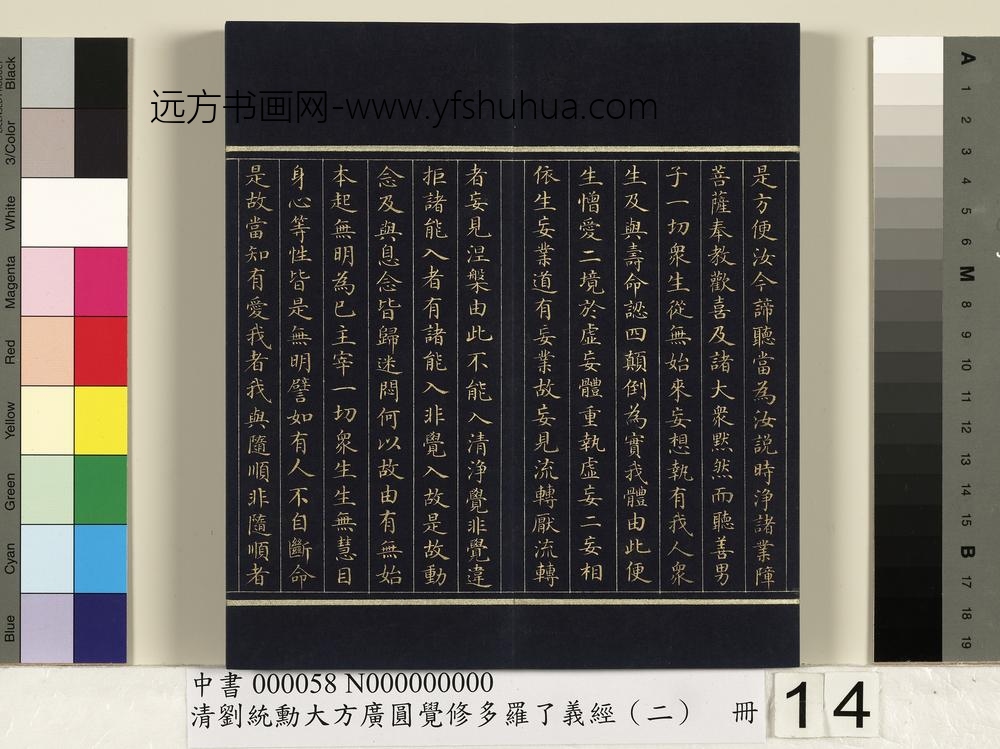 远方书画网-www.yfshuhua.com
是方便汝今諦聽當為汝説時淨諸業障
菩薩奉教歡喜及諸大衆默然而聽善男
子一切衆生從無始來妄想執有我人衆
生及與壽命認四顛倒為實我體由此便
生憎愛二境於虛妄體重執虛妄二妄相
依生妄業道有妄業故妄見流轉厭流轉
者妄見涅槃由此不能入清淨覺非覺違
拒諸能入者有諸能入非覺入故是故動
念及與息念皆歸迷悶何以故由有無始
本起無明為己主宰一切衆生生無慧目
身心等性皆是無明譬如有人不自斷命
是故當知有愛我者我與隨順非隨順者
中書 000058 N000000000
清劉統勳大方廣圓覺修多羅了義經（二） 冊
14
Black
3/Color
White
Magenta
Red
Yellow
Green
Cyan
Blue
A
1
2
3
4
5
6
M
8
9
10
11
12
13
14
15
B
17
18
19